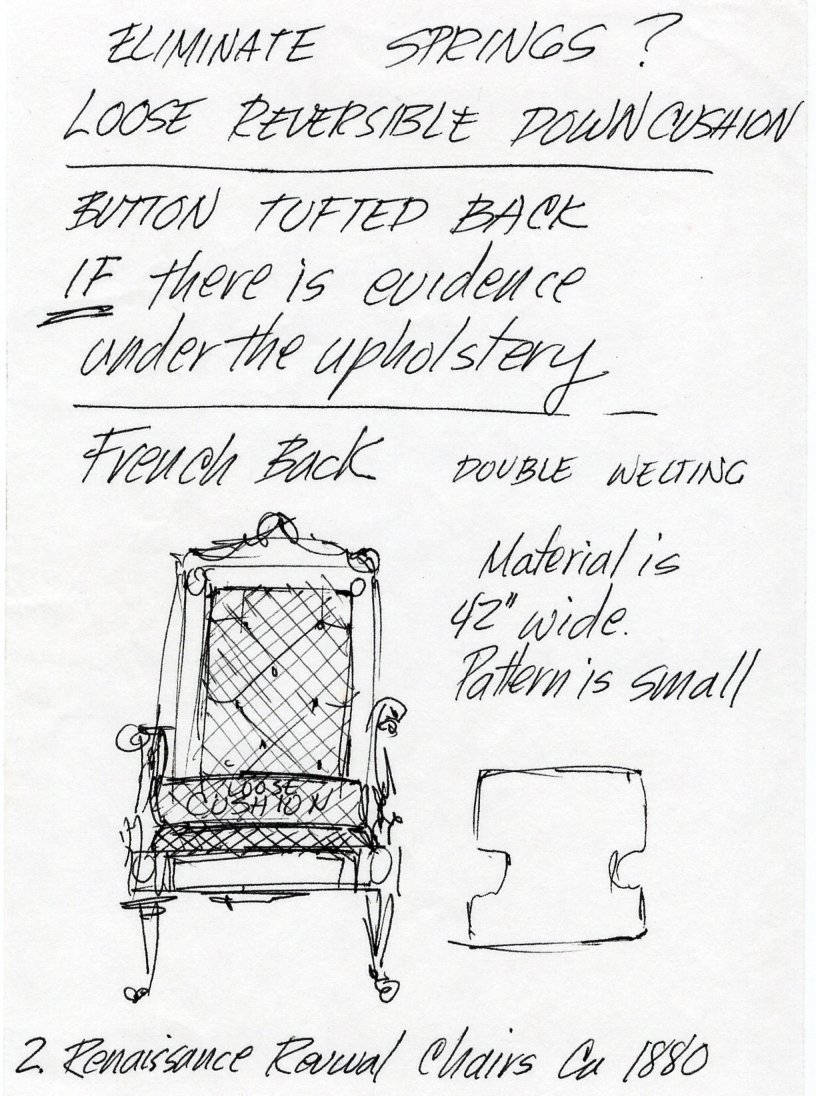 ELIMINATE SPRINGS?
LOOSE REVERSIBLE DOWN CUSHION
BUTTON TUFTED BACK
IF there is evidence
under the upholstery
French Back DOUBLE WELTING
Material is
42" wide.
Pattern is small
LOOSE
CUSHION
2 Renaissance Revival Chairs Ca 1880